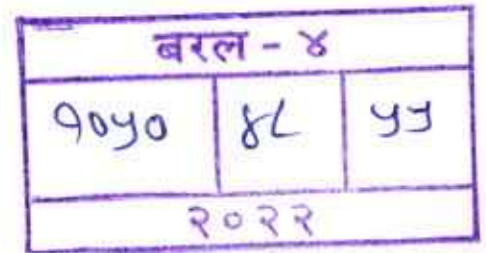 बरल - ४
१०५० ४८ ५५
२०२२